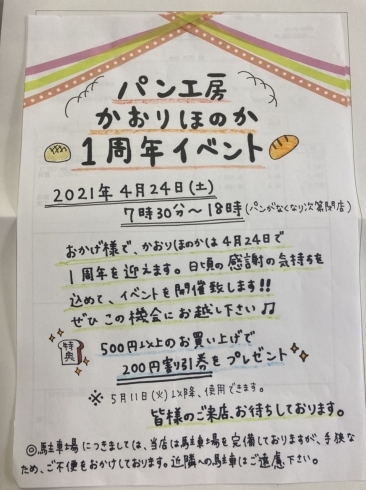 パン工房
かおりほのか
1周年イベント
2021年4月24日(土)
7時30分〜18時(パンがなくなり次第閉店)
おかげ様で、かおりほのかは4月24日で
1周年を迎えます。日頃の感謝の気持ちを
込めて、イベントを開催致します!!
ぜひこの機会にお越し下さい♫
特典
500円以上のお買い上げで
200円割引券をプレゼント
※5月11日(火)以降、使用できます。
皆様のご来店、お待ちしております。
◎駐車場につきましては、当店は駐車場を完備しておりますが、手狭な
ため、ご不便をおかけしております。近隣への駐車はご遠慮下さい。